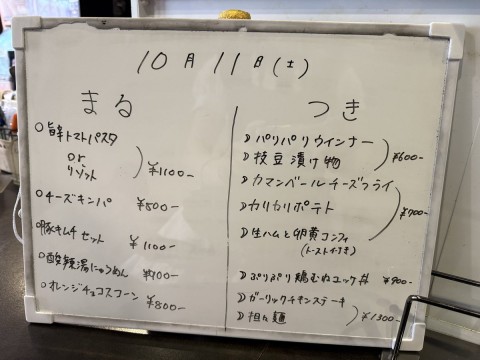 10月11日(土)
まる
○旨辛トマトパスタ
or
リゾット
¥1100-
○チーズキンパ ¥800-
○豚キムチセット ¥1100-
○酸辣湯にゅうめん ¥900-
○オレンジチョコスコーン ¥800-
つき
☽パリパリウインナー
☽枝豆漬け物
¥600-
☽カマンベールチーズフライ
☽カリカリポテト
☽生ハムと卵黄コンフィ
(トースト付き)
¥700-
☽ぷりぷり鶏むねユッケ丼 ¥900-
☽ガーリックチキンステーキ
☽担々麺
¥1300-